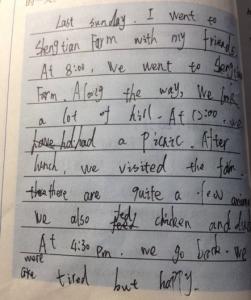 Last sunday. I went to
Shengtian Farm with my friends
At 8:00, we went to Shengtian
Farm. Along the way, We
a lot of hill. At 12:00 we
have had had a picnic. After
lunch, we visited the farm.
there are quite a few
We also fed chicken and
At 4:30 pm. we go back. We
were
are tired but happy.